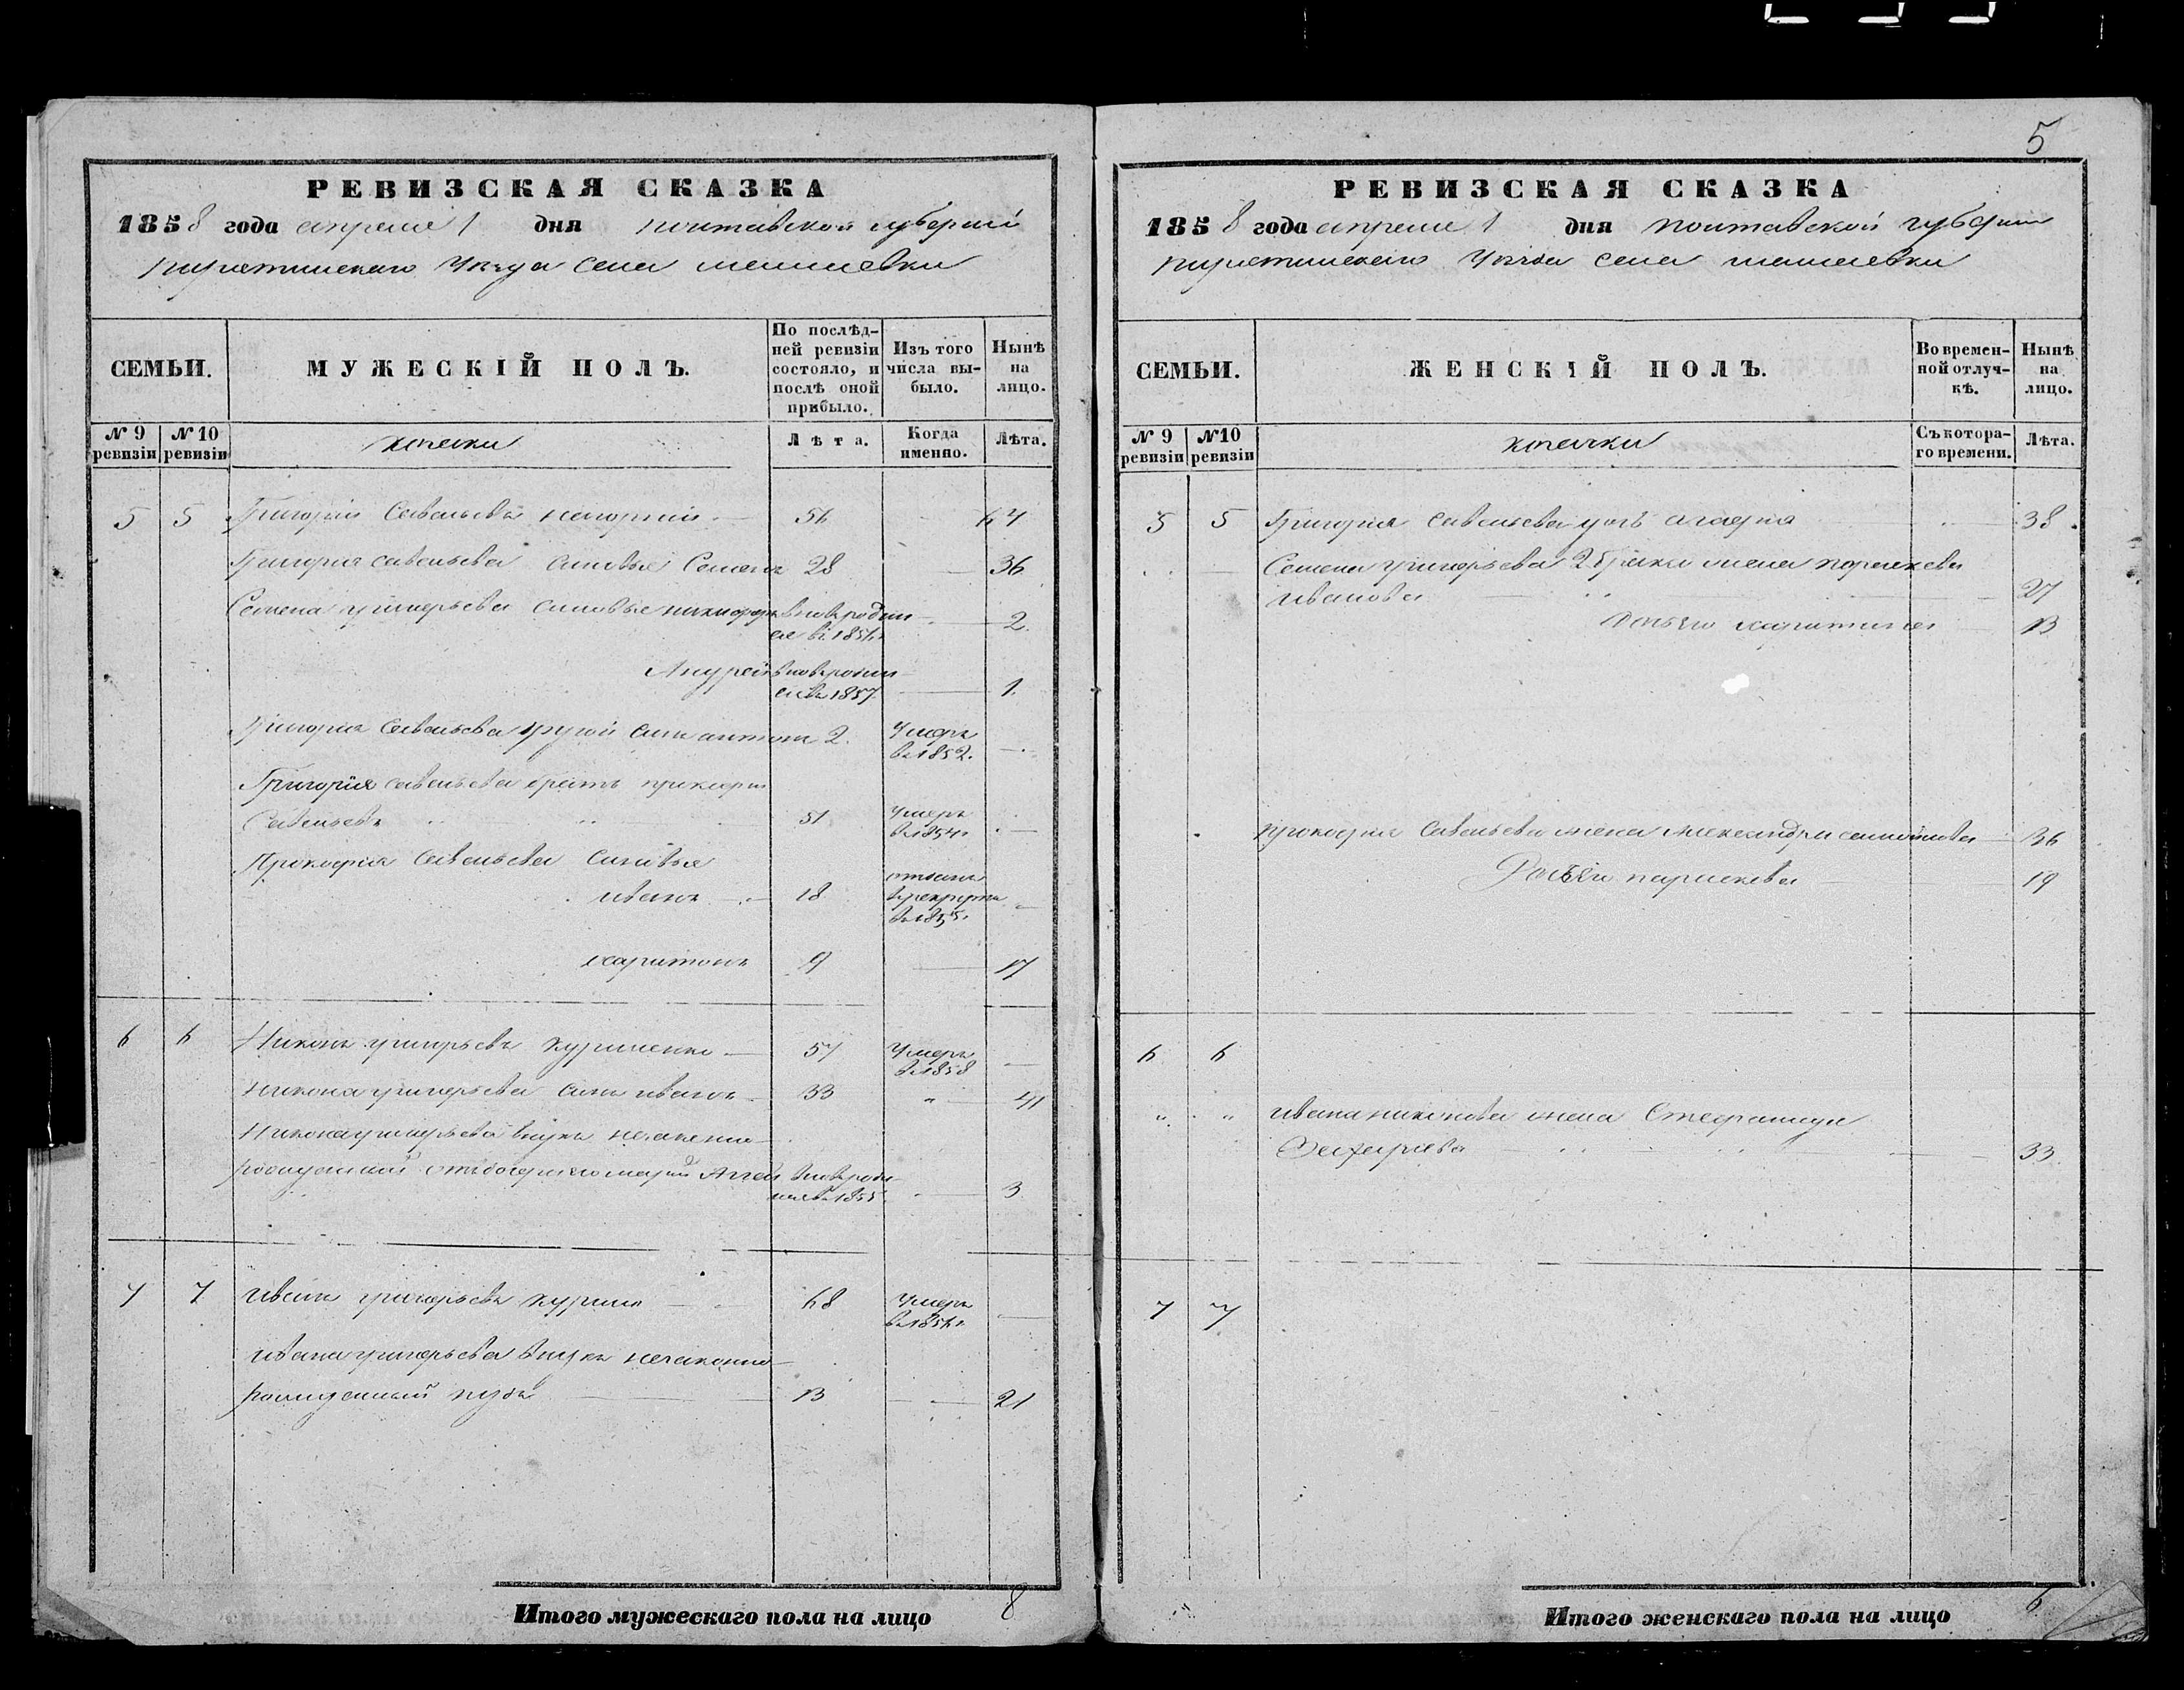 5
РЕВИЗСКАЯ СКАЗКА
1858 года апреля 1 дня Полтавской губернии
Пирятинскаго уѣзда села
СЕМЬИ.
МУЖЕСКІЙ ПОЛЪ.
По послѣд-
ней ревизіи
состояло, и
послѣ оной
прибыло.
Изъ того
числа вы-
было.
Нынѣ
на
лицо.
№ 9
ревизіи
№ 10
ревизіи
козаки
Лѣта.
Когда
именно.
Лѣта.
5 5 Григорий Савельевъ 56 64
Григория Савельева сыновья Семенъ 28 36
Семена Григорьева сыновья Никифоръ вновь родил
ся въ 1856. 2.
Андрей вновь родил
ся въ 1857. 1.
Григория Савельева другой сынъ Антонъ 2. умеръ
въ 1852.
Григория Савельева братъ Прокофий
Савельевъ 51 умеръ
въ 1854.
Прокофия Савельева сыновья
Иванъ 18 отданъ
в рекруты
въ 1855.
Харитонъ 9 17
6 6 Никонъ Григорьевъ Куриленко 57 умеръ
въ 1858
Никона Григорьева сынъ Иванъ 33 41
Никона Григорьева внукъ незаконно-
рожденный отъ дочери его Агей вновь роди-
лся въ 1855. 3
7 7 Иванъ Григорьевъ 68 умеръ
въ 1856.
Ивана Григорьева внукъ незаконно-
рожденный 13 21
Итого мужескаго пола на лицо 8
РЕВИЗСКАЯ СКАЗКА
1858 года апреля 1 дня Полтавской губернии
Пирятинскаго уѣзда села
СЕМЬИ.
ЖЕНСКІЙ ПОЛЪ.
Во времен-
ной отлуч-
кѣ.
Нынѣ
на
лицо.
№ 9
ревизіи
№10
ревизіи
козачки
Съ котора-
го времени.
Лѣта.
5 5 Григория Савельева дочь Агафия 38.
Семена Григорьева 2 брака жена Порасковия
Иванова 27
Дочь его Харитина 13
Прокофия Савельева жена Александра 36
Дочь его Парасковия 19
6 6
" " Ивана Никонова жена Стефанида
Захарьева 33
7 7
Итого женскаго пола на лицо 6